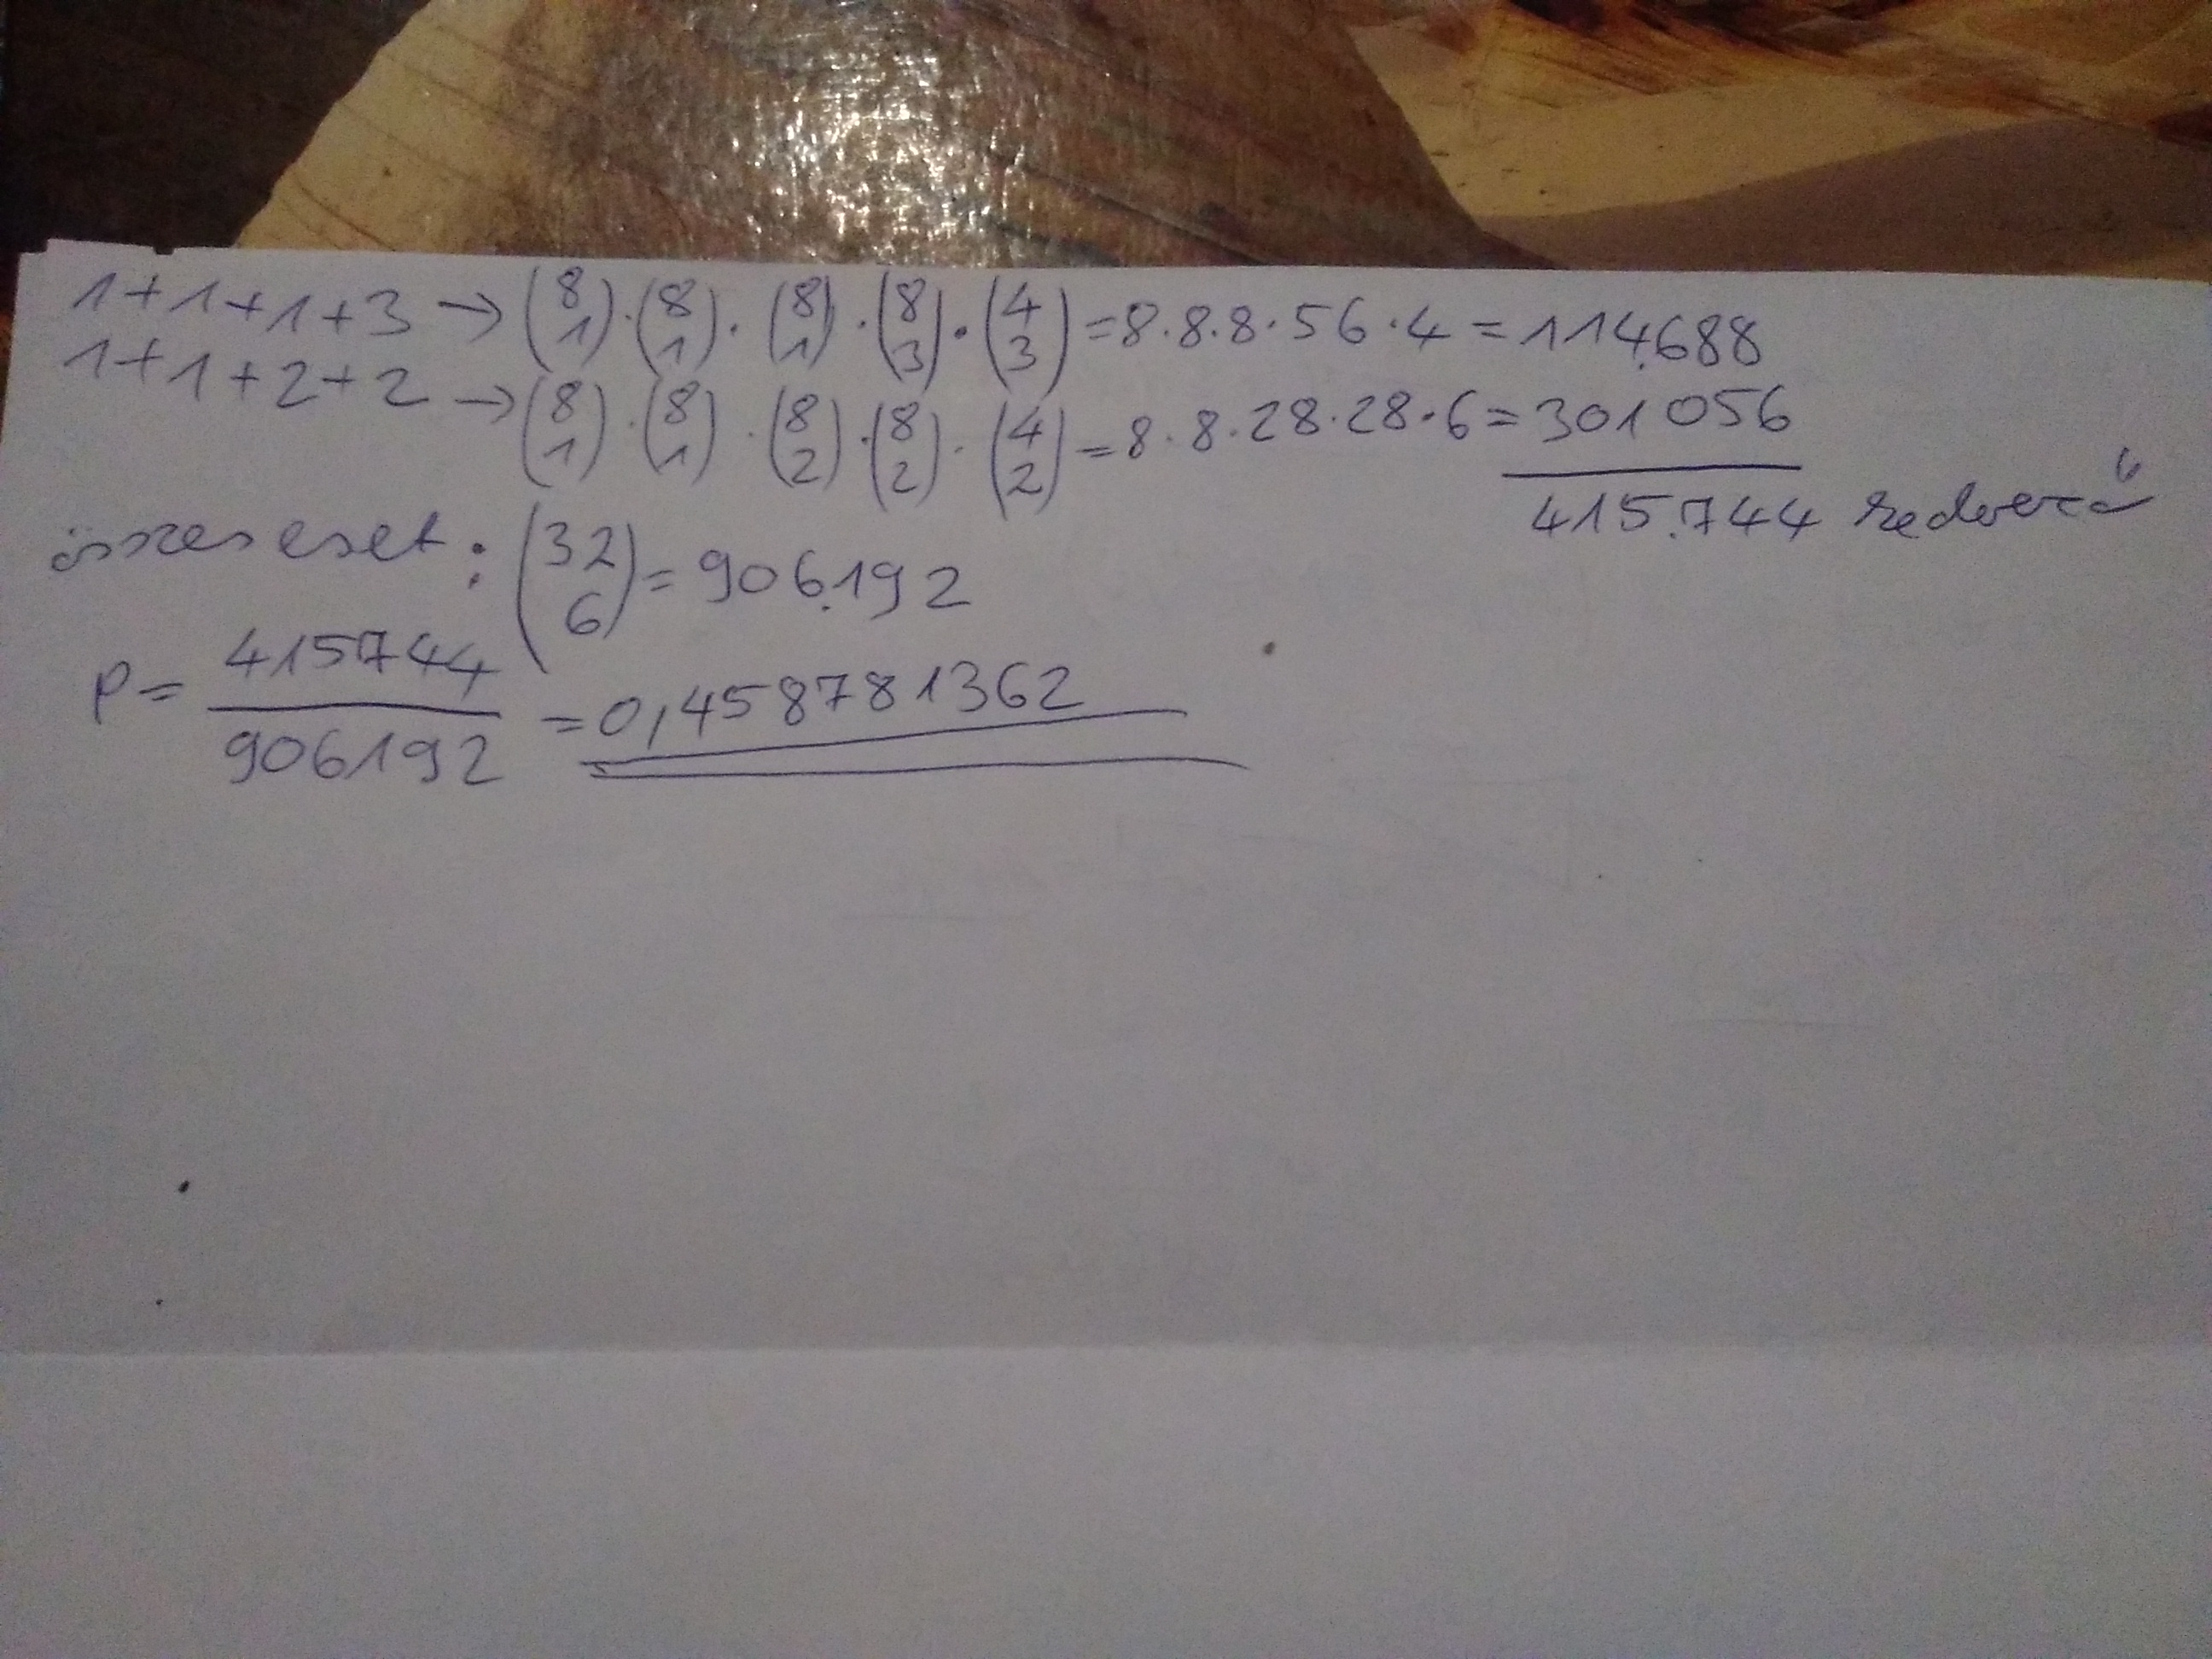 1+1+1+3 → (8 1)·(8 1)·(8 1)·(8 3)·(4 3)=8·8·8·56·4=114.688
1+1+2+2 → (8 1)·(8 1)·(8 2)·(8 2)·(4 2)=8·8·28·28·6=301056
415.744 kedvező
összes eset: (32 6)=906.192
P= 415744/906192 =0,458781362